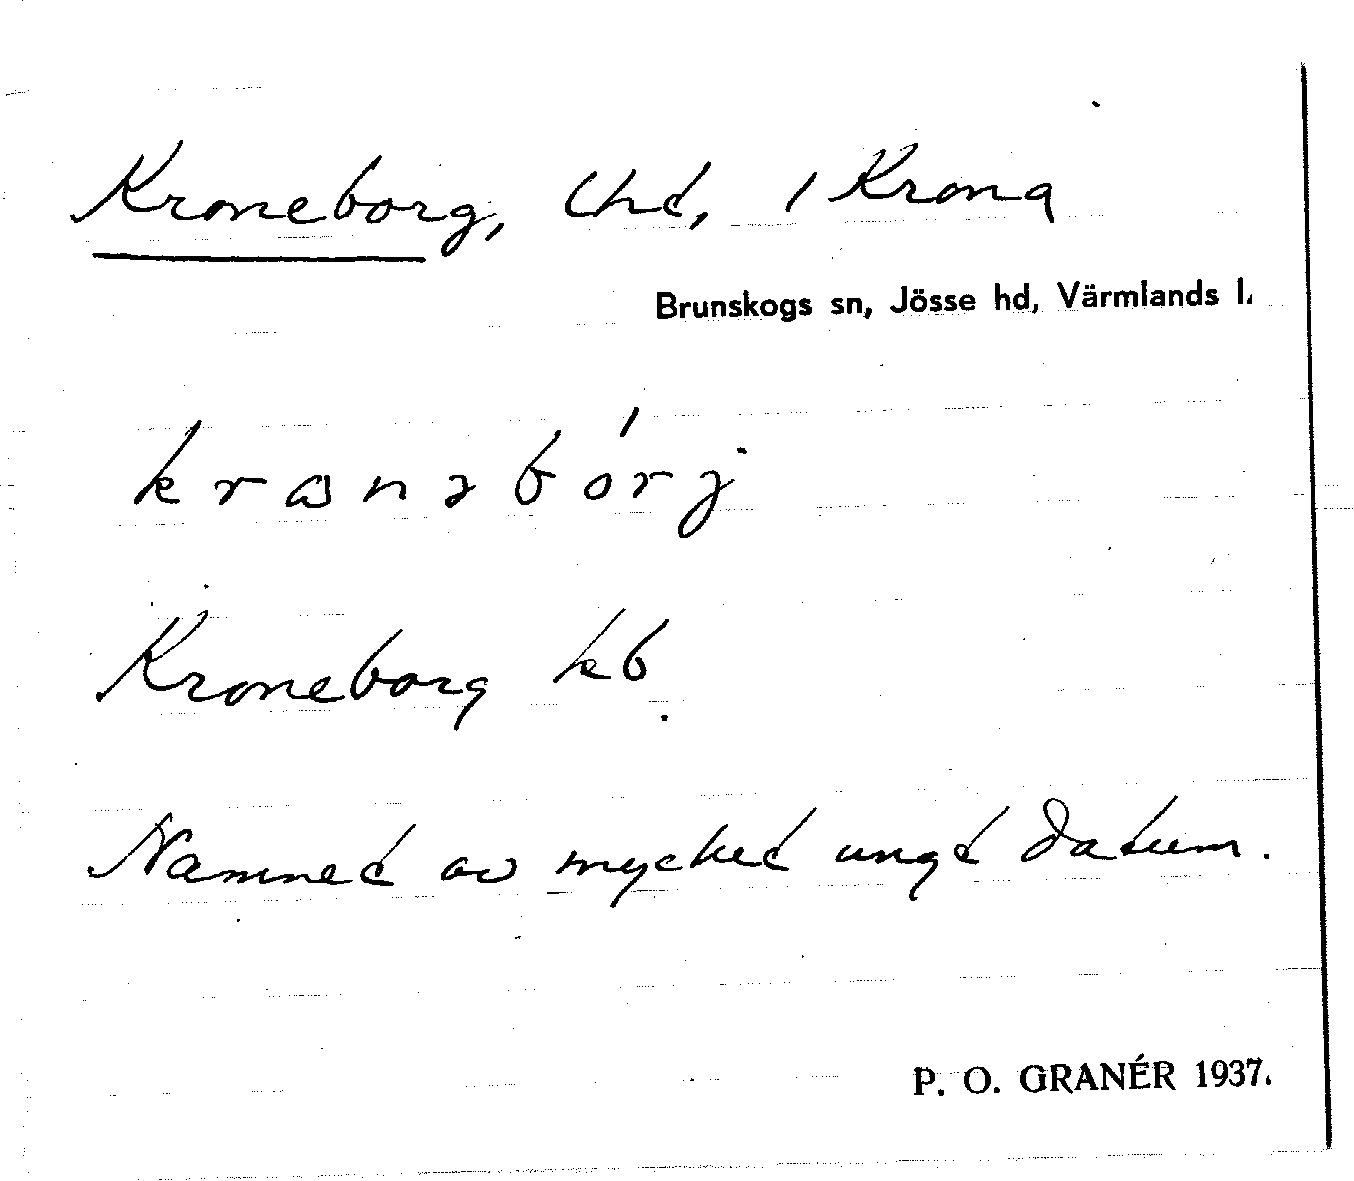 Kroneborg, lht, / Krona
Brunskogs sn, Jösse hd, Värmlands l.
Kroneborg kb
Namnet av mycket ungt datum.
P. O. GRANÉR 1937.